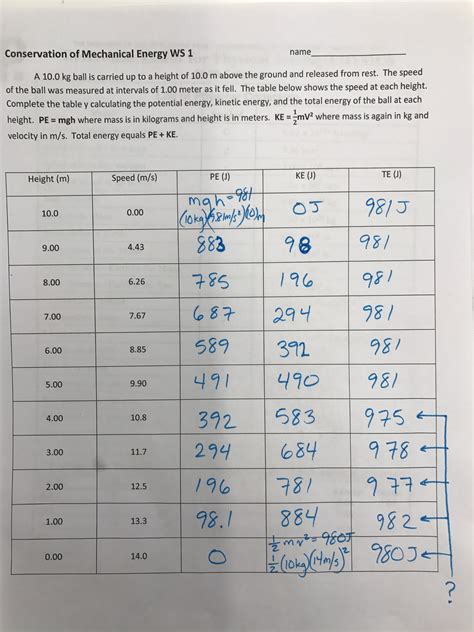 Conservation of Mechanical Energy WS 1 name
A 10.0 kg ball is carried up to a height of 10.0 m above the ground and released from rest. The speed
of the ball was measured at intervals of 1.00 meter as it fell. The table below shows the speed at each height.
Complete the table y calculating the potential energy, kinetic energy, and the total energy of the ball at each
height. PE = mgh where mass is in kilograms and height is in meters. KE = ½mV² where mass is again in kg and
velocity in m/s. Total energy equals PE + KE.
Height (m) Speed (m/s) PE (J) KE (J) TE (J)
mgh = 981
10.0 0.00 (10kg)(9.81m/s²)(10)m 0J 981J
9.00 4.43 883 98 981
8.00 6.26 785 196 981
7.00 7.67 687 294 981
6.00 8.85 589 392 981
5.00 9.90 491 490 981
4.00 10.8 392 583 975
3.00 11.7 294 684 978
2.00 12.5 196 781 977
1.00 13.3 98.1 884 982
½ mv² = 980J
0.00 14.0 0 ½(10kg)(14m/s)² 980J
?